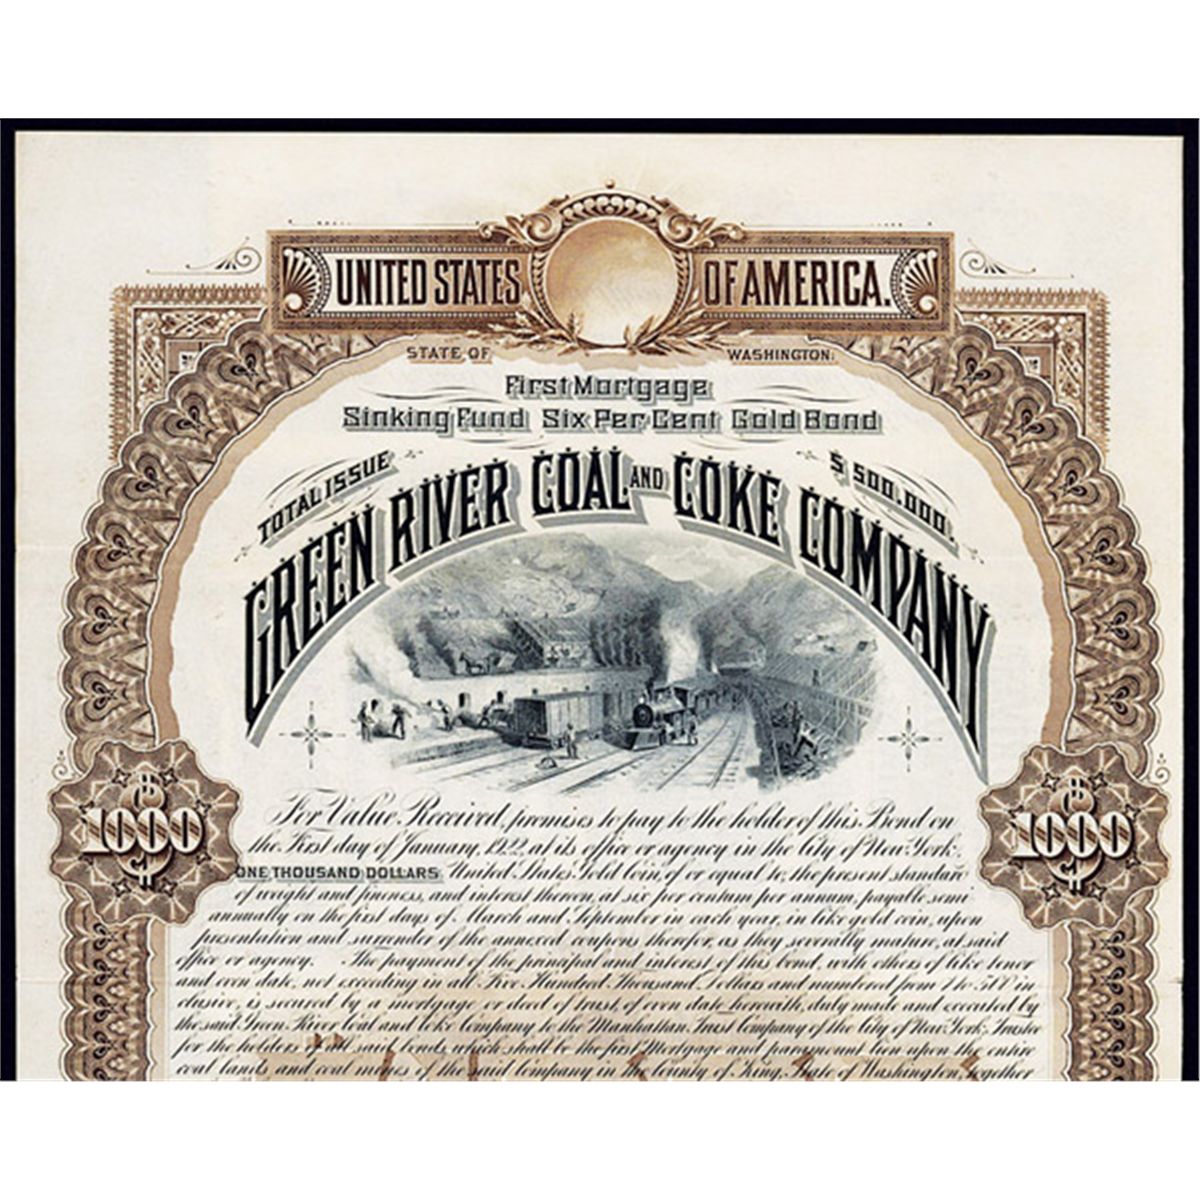 UNITED STATES OF AMERICA.
STATE OF WASHINGTON.
First Mortgage
Sinking Fund Six Per Cent Gold Bond
TOTAL ISSUE $500,000.
GREEN RIVER COAL AND COKE COMPANY
$1000 $1000
For Value Received, promises to pay to the holder of this Bond on
the First day of January, 1922, at its office or agency in the City of New York,
ONE THOUSAND DOLLARS United States Gold Coin, of or equal to, the present standard
of weight and fineness, and interest thereon, at six per centum per annum, payable semi
annually on the first days of March and September in each year, in like gold coin, upon
presentation and surrender of the annexed coupons therefor, as they severally mature, at said
office or agency. The payment of the principal and interest of this bond, with others of like tenor
and even date, not exceeding in all Five Hundred Thousand Dollars and numbered from 1 to in
clusive, is secured by a mortgage or deed of trust, of even date herewith, duly made and executed by
the said Green River Coal and Coke Company to the Manhattan Trust Company of the City of New York, Trustee
for the holders of all said bonds, which shall be the first Mortgage and paramount lien upon the entire
coal lands and coal mines of the said Company in the County of King, State of Washington, together